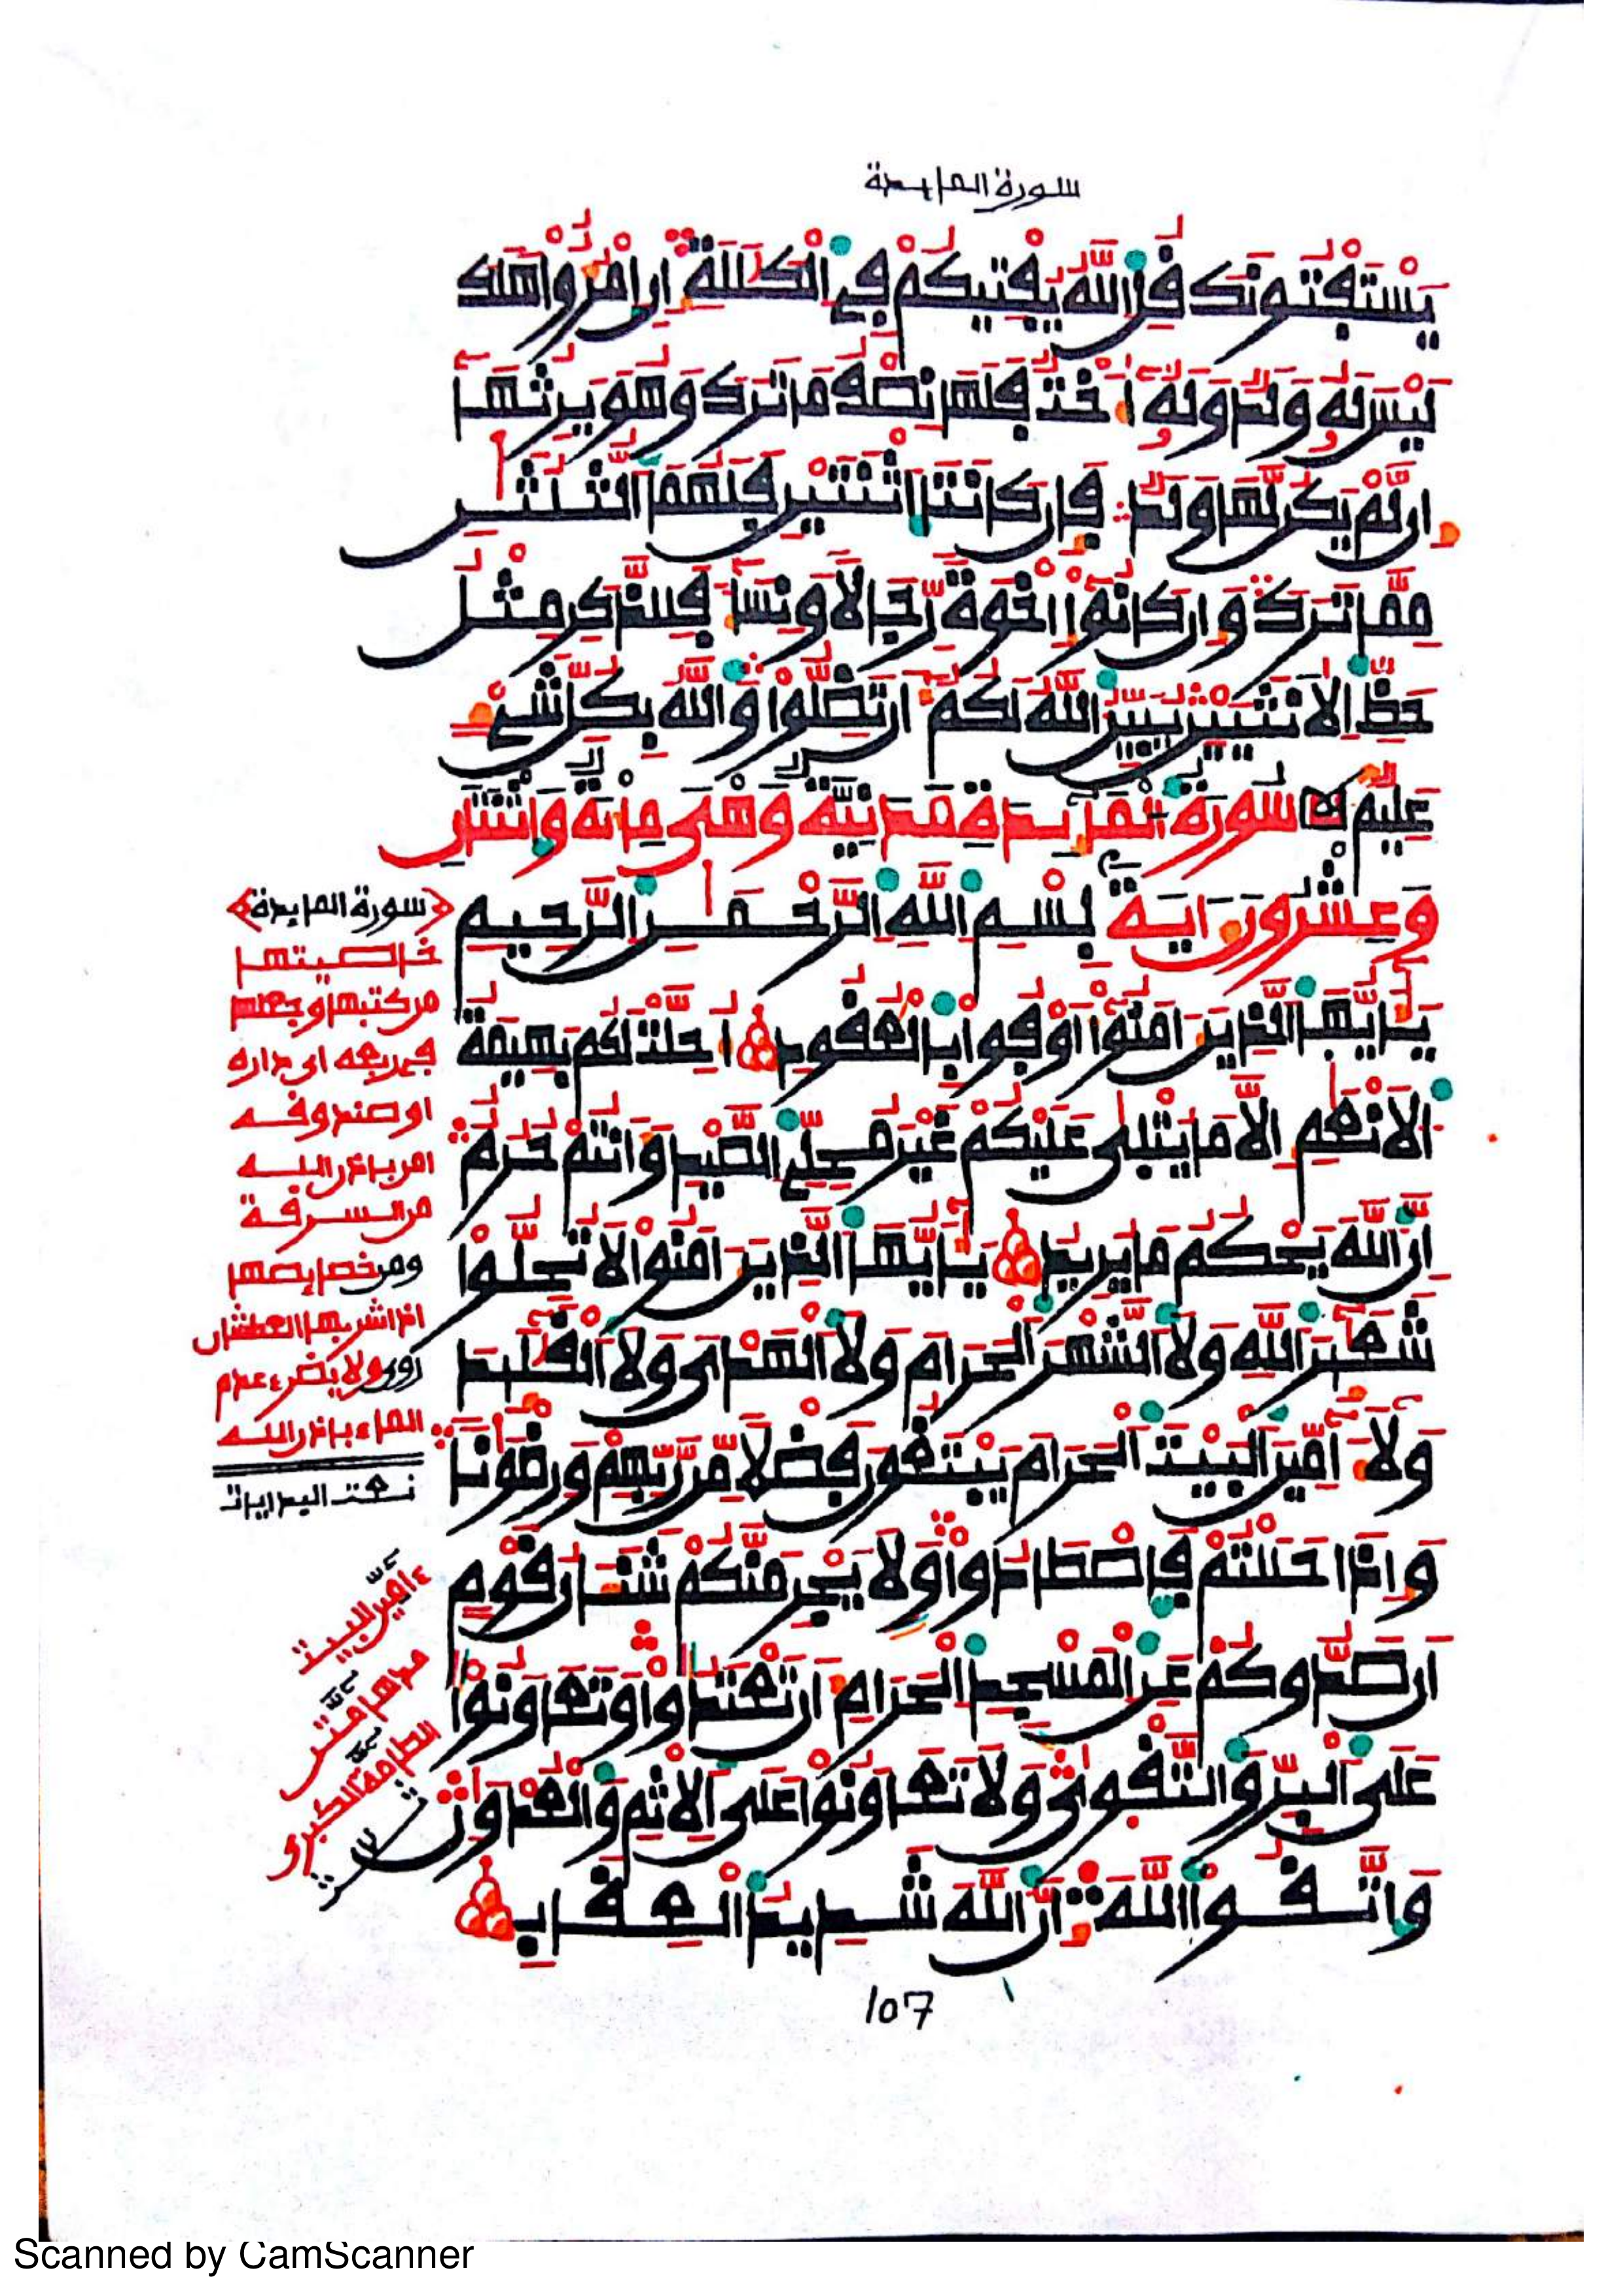 سورة المايدة
يَسْتَفْتُونَكَ قُلِ اللَّهُ يُفْتِيكُمْ فِي الْكَلَلَةِ إِنِ امْرُؤٌا هَلَكَ
لَيْسَ لَهُ وَلَدٌ وَلَهُ أُخْتٌ فَلَهَا نِصْفُ مَا تَرَكَ وَهُوَ يَرِثُهَا
إِن لَّمْ يَكُن لَّهَا وَلَدٌ فَإِن كَانَتَا اثْنَتَيْنِ فَلَهُمَا الثُّلُثَنِ
مِمَّا تَرَكَ وَإِن كَانُوا إِخْوَةً رِّجَالًا وَنِسَاءً فَلِلذَّكَرِ مِثْلُ
حَظِّ الْأُنثَيَيْنِ يُبَيِّنُ اللَّهُ لَكُمْ أَن تَضِلُّوا وَاللَّهُ بِكُلِّ شَيْءٍ
عَلِيمٌ سُورَةُ الْمَائِدَةِ مَدَنِيَّةٌ وَهْيَ مِائَةٌ وَاثْنَتَانِ
وَعِشْرُونَ ءَايَةً بِسْمِ اللَّهِ الرَّحْمَنِ الرَّحِيمِ
يَأَيُّهَا الَّذِينَ ءَامَنُوا أَوْفُوا بِالْعُقُودِ أُحِلَّتْ لَكُم بَهِيمَةُ
الْأَنْعَمِ إِلَّا مَا يُتْلَى عَلَيْكُمْ غَيْرَ مُحِلِّي الصَّيْدِ وَأَنتُمْ حُرُمٌ
إِنَّ اللَّهَ يَحْكُمُ مَا يُرِيدُ يَأَيُّهَا الَّذِينَ ءَامَنُوا لَا تُحِلُّوا
شَعَئِرَ اللَّهِ وَلَا الشَّهْرَ الْحَرَامَ وَلَا الْهَدْيَ وَلَا الْقَلَئِدَ
وَلَا ءَامِّينَ الْبَيْتَ الْحَرَامَ يَبْتَغُونَ فَضْلًا مِّن رَّبِّهِمْ وَرِضْوَنًا
وَإِذَا حَلَلْتُمْ فَاصْطَادُوا وَلَا يَجْرِمَنَّكُمْ شَنَئَانُ قَوْمٍ
أَن صَدُّوكُمْ عَنِ الْمَسْجِدِ الْحَرَامِ أَن تَعْتَدُوا وَتَعَاوَنُوا
عَلَى الْبِرِّ وَالتَّقْوَى وَلَا تَعَاوَنُوا عَلَى الْإِثْمِ وَالْعُدْوَنِ
وَاتَّقُوا اللَّهَ إِنَّ اللَّهَ شَدِيدُ الْعِقَابِ
107
سورة المايدة
خاصيتها
من كتبها وجعلها
في ربعه اى داره
او صندوقه
امن باذن الله
من السرقة
ومن خصايصها
اذا شربها العطشان
روى ولا يضره عدم
الماء باذن الله
نعت البدايات
ءامين البيت
مدهامتن
الطامة الكبرى
Scanned by CamScanner